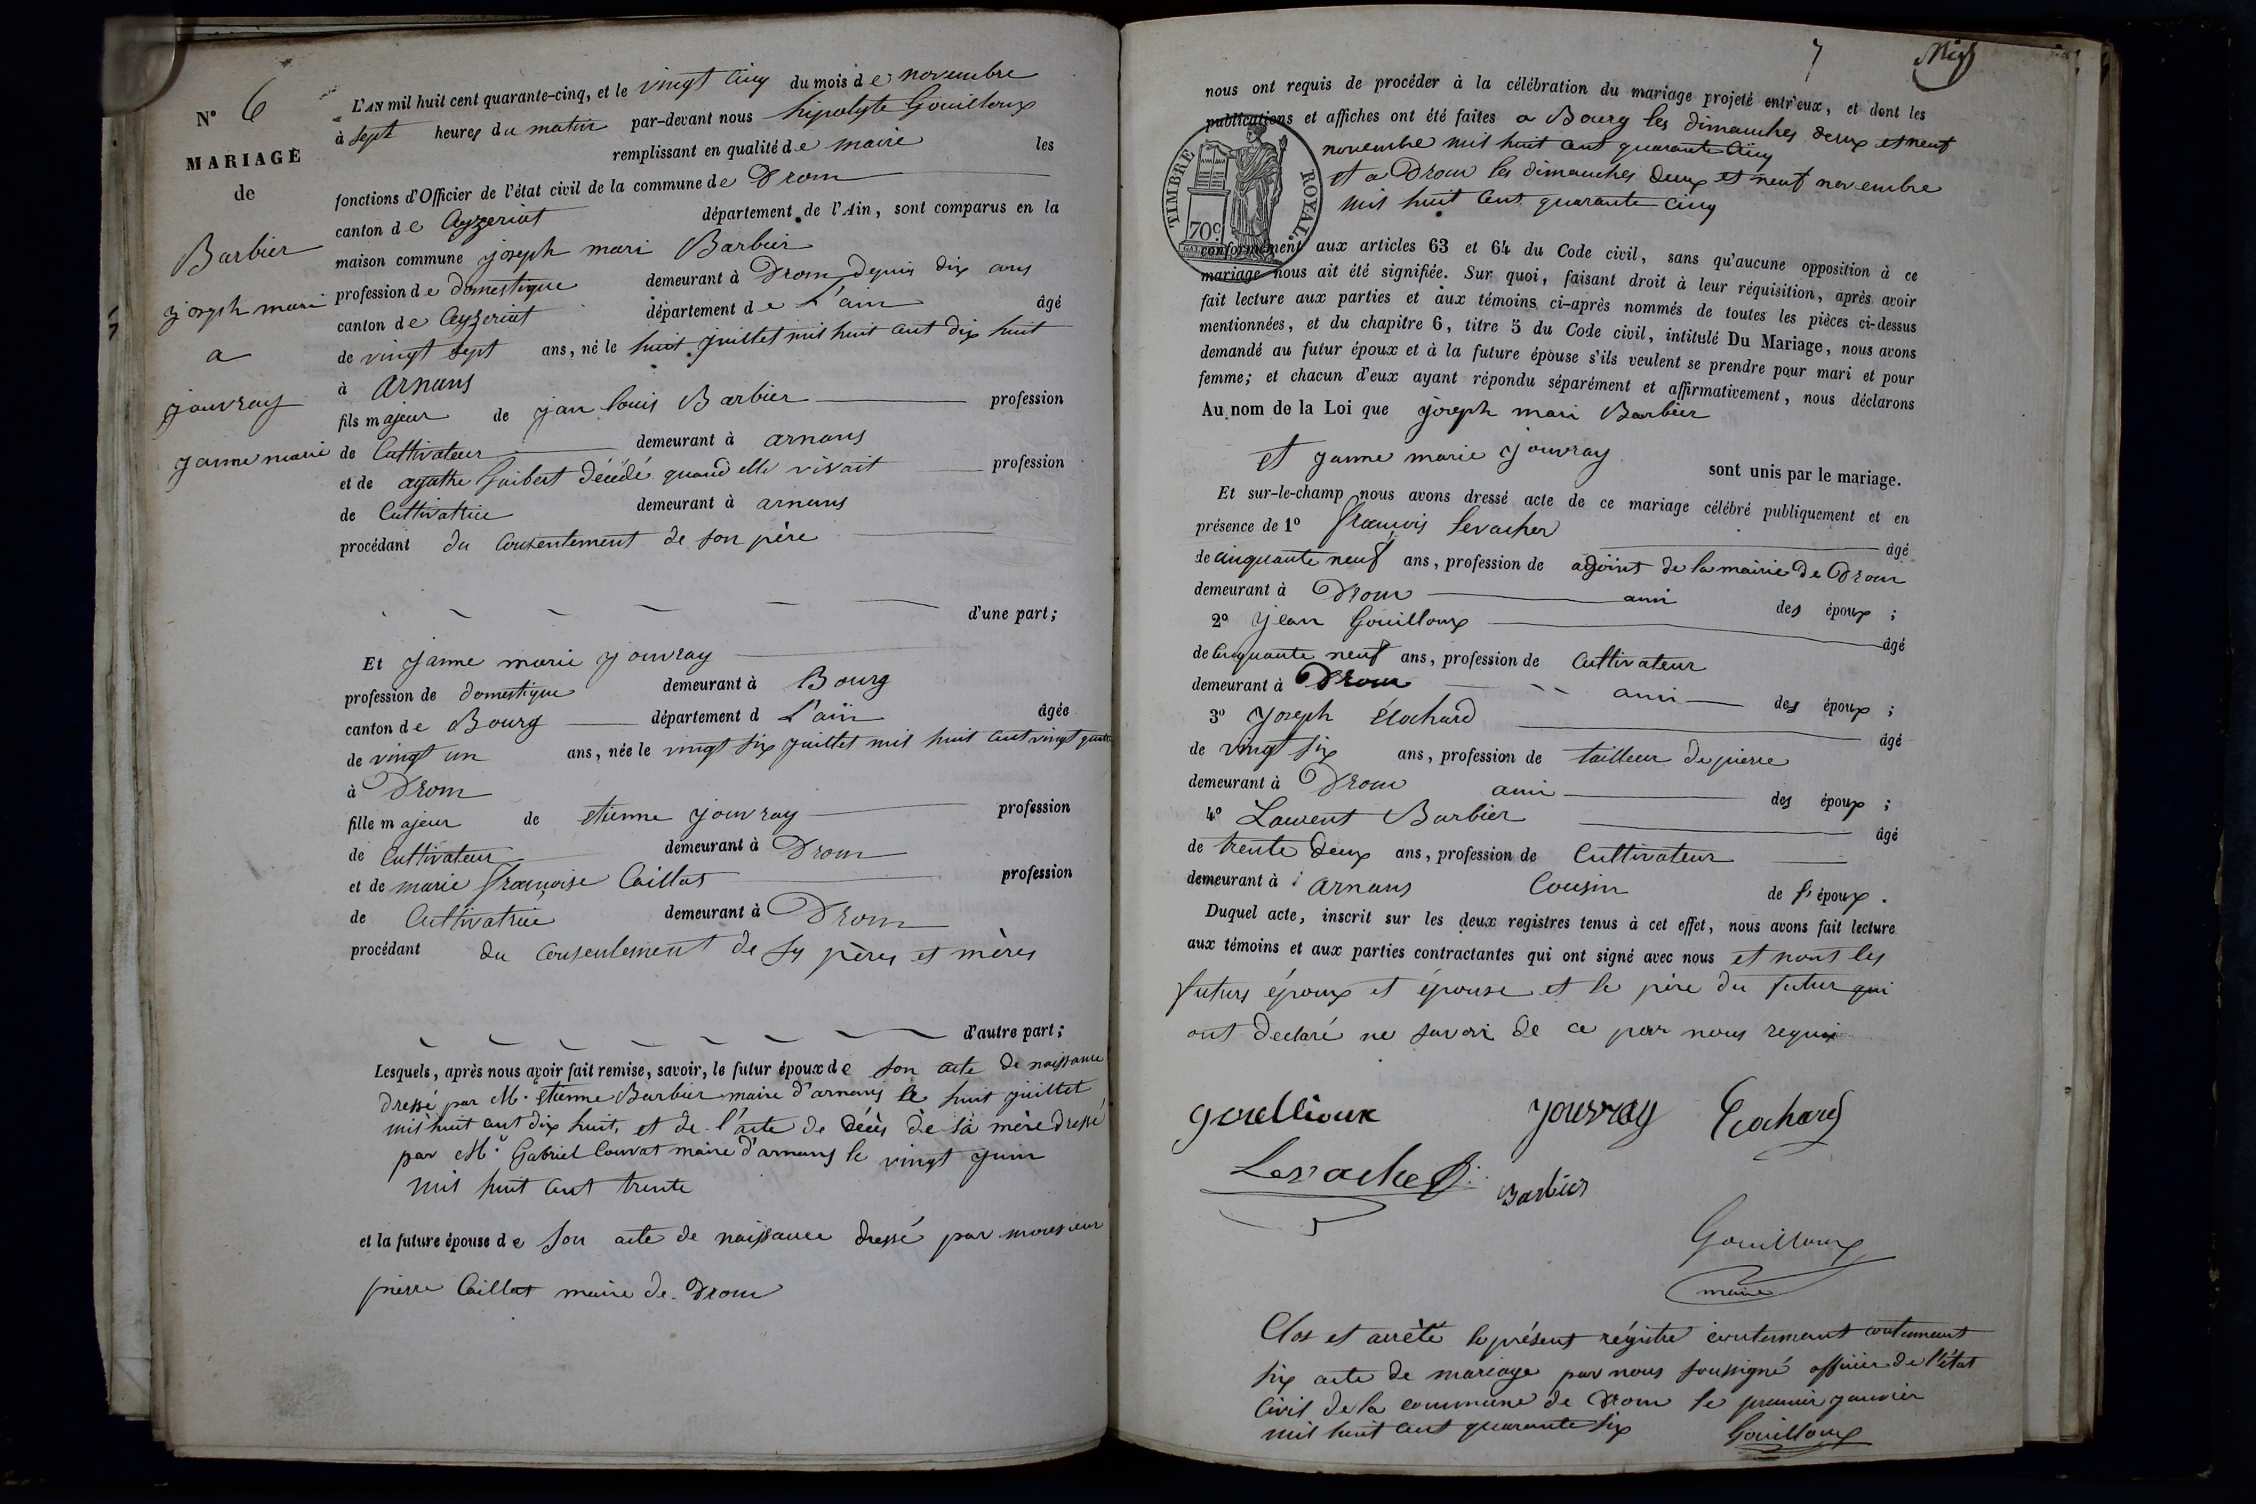 N° 6
MARIAGE
de
Barbier
joseph mari
a
jouvray
janne marie
L'AN mil huit cent quarante-cinq, et le vingt cinq du mois de novembre
à sept heures du matin par-devant nous hipolyte Gouilloux
remplissant en qualité de maire les
fonctions d'Officier de l'état civil de la commune de Drom
canton de Ceyzeriat département de l'Ain, sont comparus en la
maison commune joseph mari Barbier
profession de domestique demeurant à Drom depuis dix ans
canton de Ceyzeriat département de L'ain âgé
de vingt sept ans, né le huit juillet mil huit cent dix huit
à Arnans
fils majeur de jan louis Barbier profession
de Cultivateur demeurant à arnans
et de agathe Guibert décédé quand elle vivait profession
de Cultivatrice demeurant à arnans
procédant du consentement de son père
d'une part;
Et janne marie jouvray
profession de domestique demeurant à Bourg
canton de Bourg département d L'ain âgée
de vingt un ans, née le vingt six juillet mil huit cent vingt quatre
à Drom
fille majeur de etienne jouvray profession
de Cultivateur demeurant à Drom
et de marie françoise Caillat profession
de Cultivatrice demeurant à Drom
procédant du consentement de ses pères et mères
d'autre part;
Lesquels, après nous avoir fait remise, savoir, le futur époux de son acte de naissance
dressé par Mr etienne Barbier maire d'arnans le huit juillet
mil huit cent dix huit, et de l'acte de décès de sa mère dressé
par Mr Gabriel Convat maire d'arnans le vingt juin
mil huit cent trente
et la future épouse de son acte de naissance dressé par monsieur
pierre Caillat maire de Drom
7
nous ont requis de procéder à la célébration du mariage projeté entr'eux, et dont les
publications et affiches ont été faites a Bourg les dimanches deux et neuf
novembre mil huit cent quarante cinq
et a Drom les dimanches deux et neuf novembre
mil huit cent quarante cinq
TIMBRE ROYAL.
70c.
conformément aux articles 63 et 64 du Code civil, sans qu'aucune opposition à ce
mariage nous ait été signifiée. Sur quoi, faisant droit à leur réquisition, après avoir
fait lecture aux parties et aux témoins ci-après nommés de toutes les pièces ci-dessus
mentionnées, et du chapitre 6, titre 5 du Code civil, intitulé Du Mariage, nous avons
demandé au futur époux et à la future épouse s'ils veulent se prendre pour mari et pour
femme; et chacun d'eux ayant répondu séparément et affirmativement, nous déclarons
Au nom de la Loi que joseph mari Barbier
et janne marie jouvray sont unis par le mariage.
Et sur-le-champ nous avons dressé acte de ce mariage célébré publiquement et en
présence de 1° françois levacher âgé
de cinquante neuf ans, profession de adjoint de la mairie de Drom
demeurant à Drom ami des époux;
2° jean Gouilloux âgé
de cinquante neuf ans, profession de Cultivateur
demeurant à Drom ami des époux;
3° joseph Élochard âgé
de vingt six ans, profession de tailleur de pierre
demeurant à Drom ami des époux;
4° Laurent Barbier âgé
de trente deux ans, profession de Cultivateur
demeurant à arnans Cousin de l'époux.
Duquel acte, inscrit sur les deux registres tenus à cet effet, nous avons fait lecture
aux témoins et aux parties contractantes qui ont signé avec nous et nont les
futurs époux et épouse et le père du futur qui
ont declaré ne savoir de ce par nous requi
gouellioux jouvray Elochard
Levacher Barbier
Gouilloux
maire
Clos et arrêté le présent régistre contenant contenant
six acte de mariage par nous soussigné officier de l'état
Civil de la commune de Drom le premier janvier
mil huit cent quarante six Gouilloux